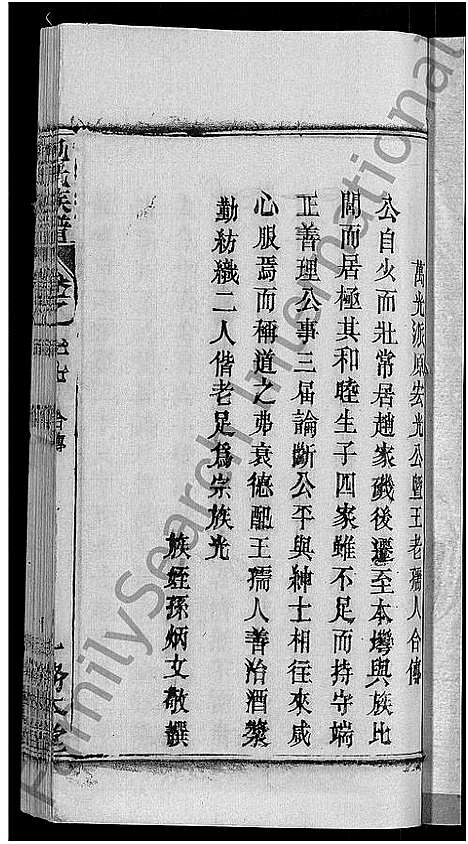 萬光派原宏光公暨王老孺人合傳
公自少而壯常居趙家磯後遷至本塆與族比
閭而居極其和睦生子四家雖不足而持守端
正善理公事三屆論斷公平與紳士相往來咸
心服焉而稱道之弗衰德配王孺人善治酒漿
勤紡織二人偕老足爲宗族光
族姪孫炳文敬撰
氏族譜
合傳
FamilySearch International